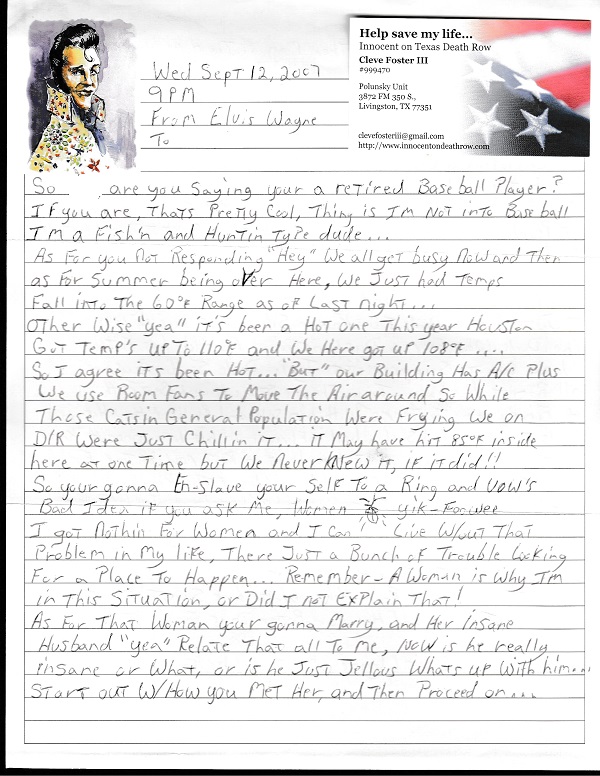 Help save my life...
Innocent on Texas Death Row
Cleve Foster III
#999470
Polunsky Unit
3872 FM 350 S.,
Livingston, TX 77351
clevefosteriii@gmail.com
http://www.innocentondeathrow.com
Wed Sept 12, 2007
9PM
From Elvis Wayne
To
So , are you Saying your a retired Baseball Player?
If you are, Thats Pretty Cool, Thing is I'm Not into Baseball
I'm a Fish'n and Huntin Type dude...
As For you Not Responding "Hey" We all get busy Now and Then
as For Summer being over Here, We Just had Temps
Fall into The 60°F Range as of Last night...
Other Wise "yea" it's been a Hot one This year Houston
Got Temp's up To 110°F and We Here got up 108°F....
So I agree iTs been HoT... "BuT" our Building Has A/c Plus
We use Room Fans To Move The Air around So While
Those Cats in General Population Were Frying We on
D/R Were Just Chillin it... iT May have hit 85°F inside
here at one Time but We Never Knew iT, if iT did!!
So your gonna En-Slave your Self To a Ring and Vow's
Bad Idea if you ask Me, Women yik-Foowee
I got Nothin For Women and I Can Live W/out That
Problem in My life, There Just a Bunch of Trouble Looking
For a Place To Happen... Remember- A Woman is Why I'm
in This Situation, or Did I not Explain That!
As For That Woman your gonna Marry, and Her insane
Husband "yea" Relate That all To Me, Now is he really
insane or What, or is he Just Jellous Whats up With him...
Start out W/How you Met Her, and Then Proceed on...